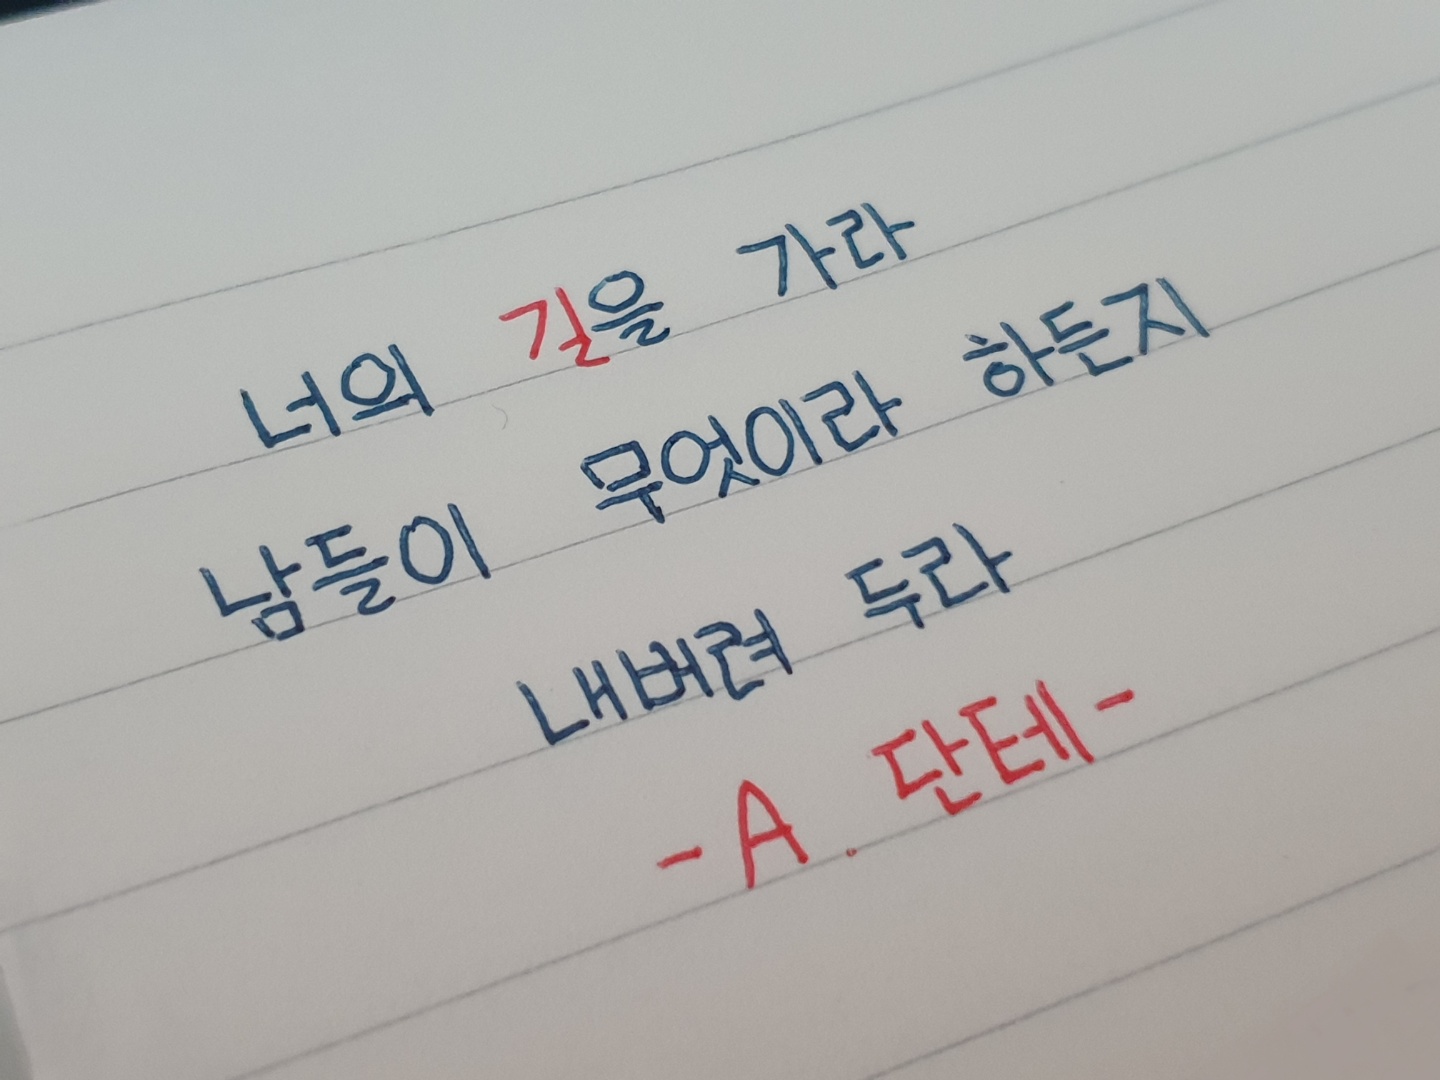 너의 길을 가라
남들이 무엇이라 하든지
내버려 두라
-A. 단테-